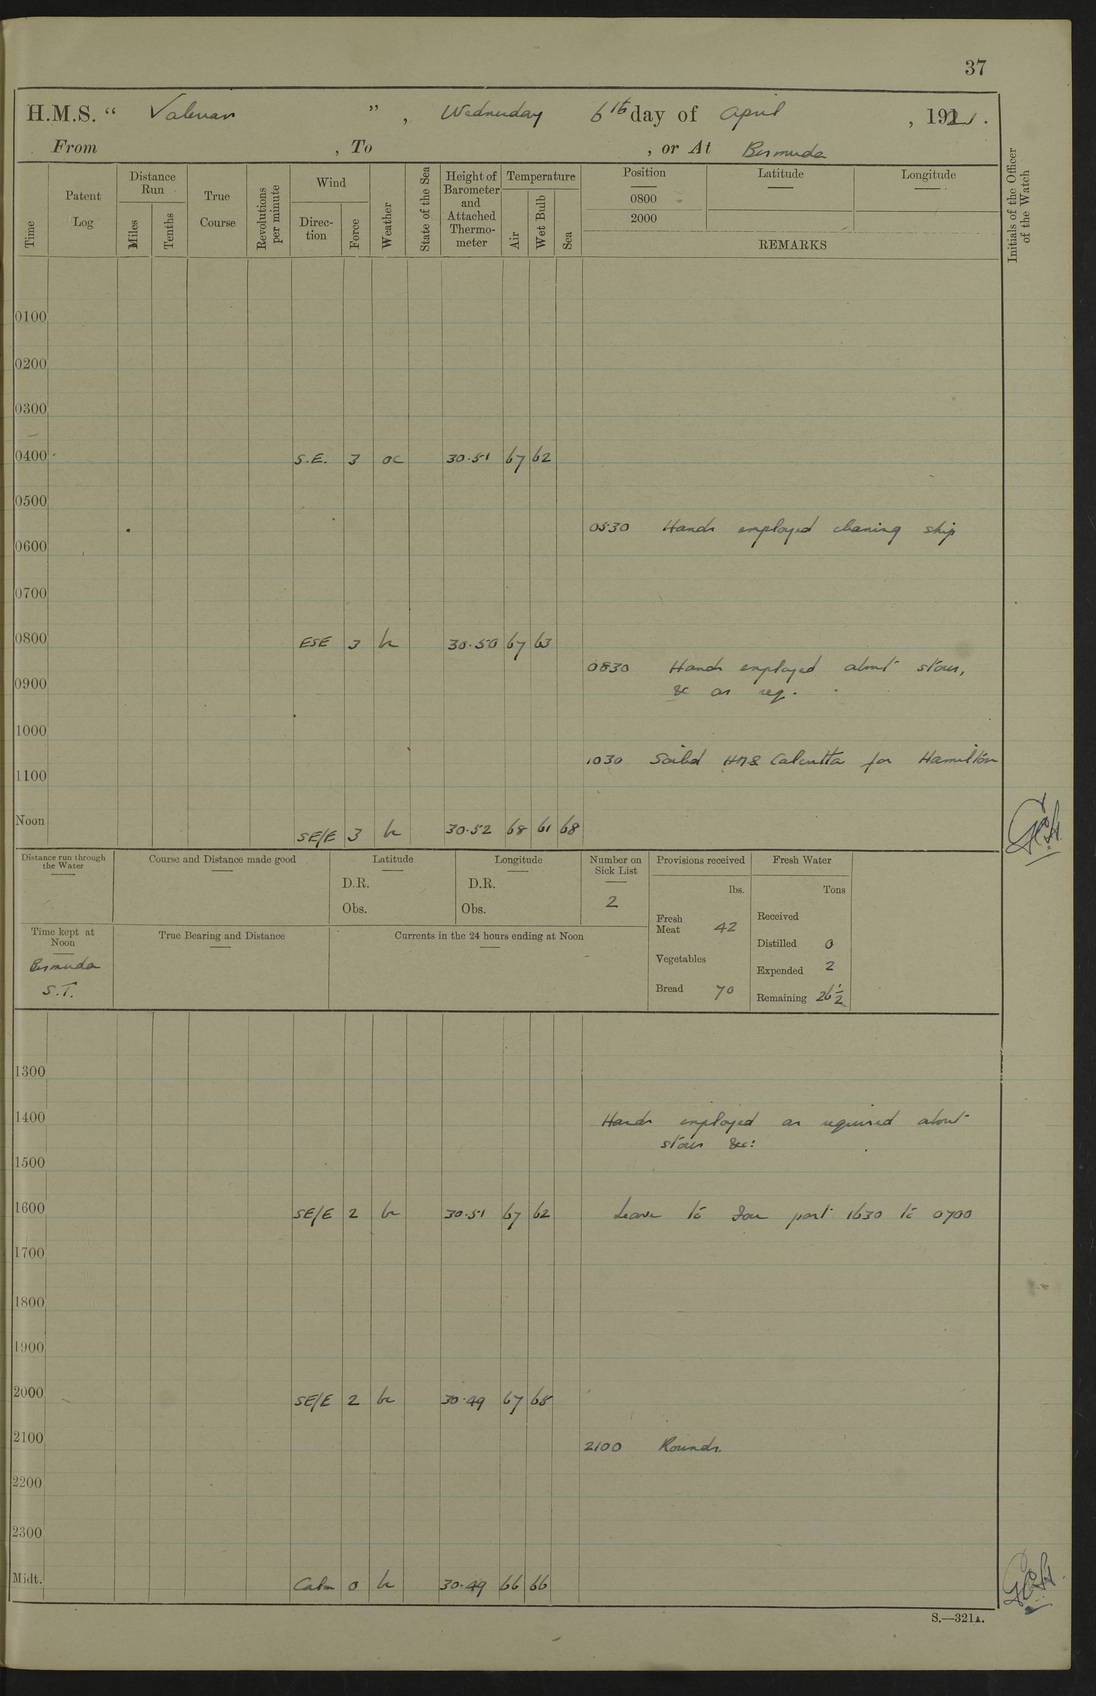 37
H.M.S. “ Valerian ” , Wednesday 6th day of April , 1921.
From , To , or At Bermuda
Time
Patent Log
Distance Run
Miles
Tenths
True Course
Revolutions per minute
Wind
Direction
Force
Weather
State of the Sea
Height of Barometer and Attached Thermometer
Temperature
Air
Wet Bulb
Sea
Position
0800
2000
Latitude
Longitude
REMARKS
Initials of the Officer of the Watch
0100
0200
0300
0400 S.E. 3 oc 30.51 67 62
0500
0530 Hands employed cleaning ship
0600
0700
0800 ESE 3 bc 30.50 67 63
0830 Hands employed about stores,
0900 &c as req.
1000
1030 Sailed HMS Calcutta for Hamilton
1100
Noon SE/E 3 bc 30.52 68 61 68
Distance run through the Water
Course and Distance made good
Latitude
D.R.
Obs.
Longitude
D.R.
Obs.
Number on Sick List
2
Provisions received
lbs.
Fresh Meat 42
Vegetables
Bread 70
Fresh Water
Tons
Received
Distilled 0
Expended 2
Remaining 26½
Time kept at Noon
Bermuda
S.T.
True Bearing and Distance
Currents in the 24 hours ending at Noon
1300
1400 Hands employed as required about
stores &c:
1500
1600 SE/E 2 bc 30.51 67 62 Leave to Four part 1630 to 0700
1700
1800
1900
2000 SE/E 2 bc 30.49 67 68
2100 2100 Rounds.
2200
2300
Midt. Calm 0 bc 30.49 66 66
S.—321A.